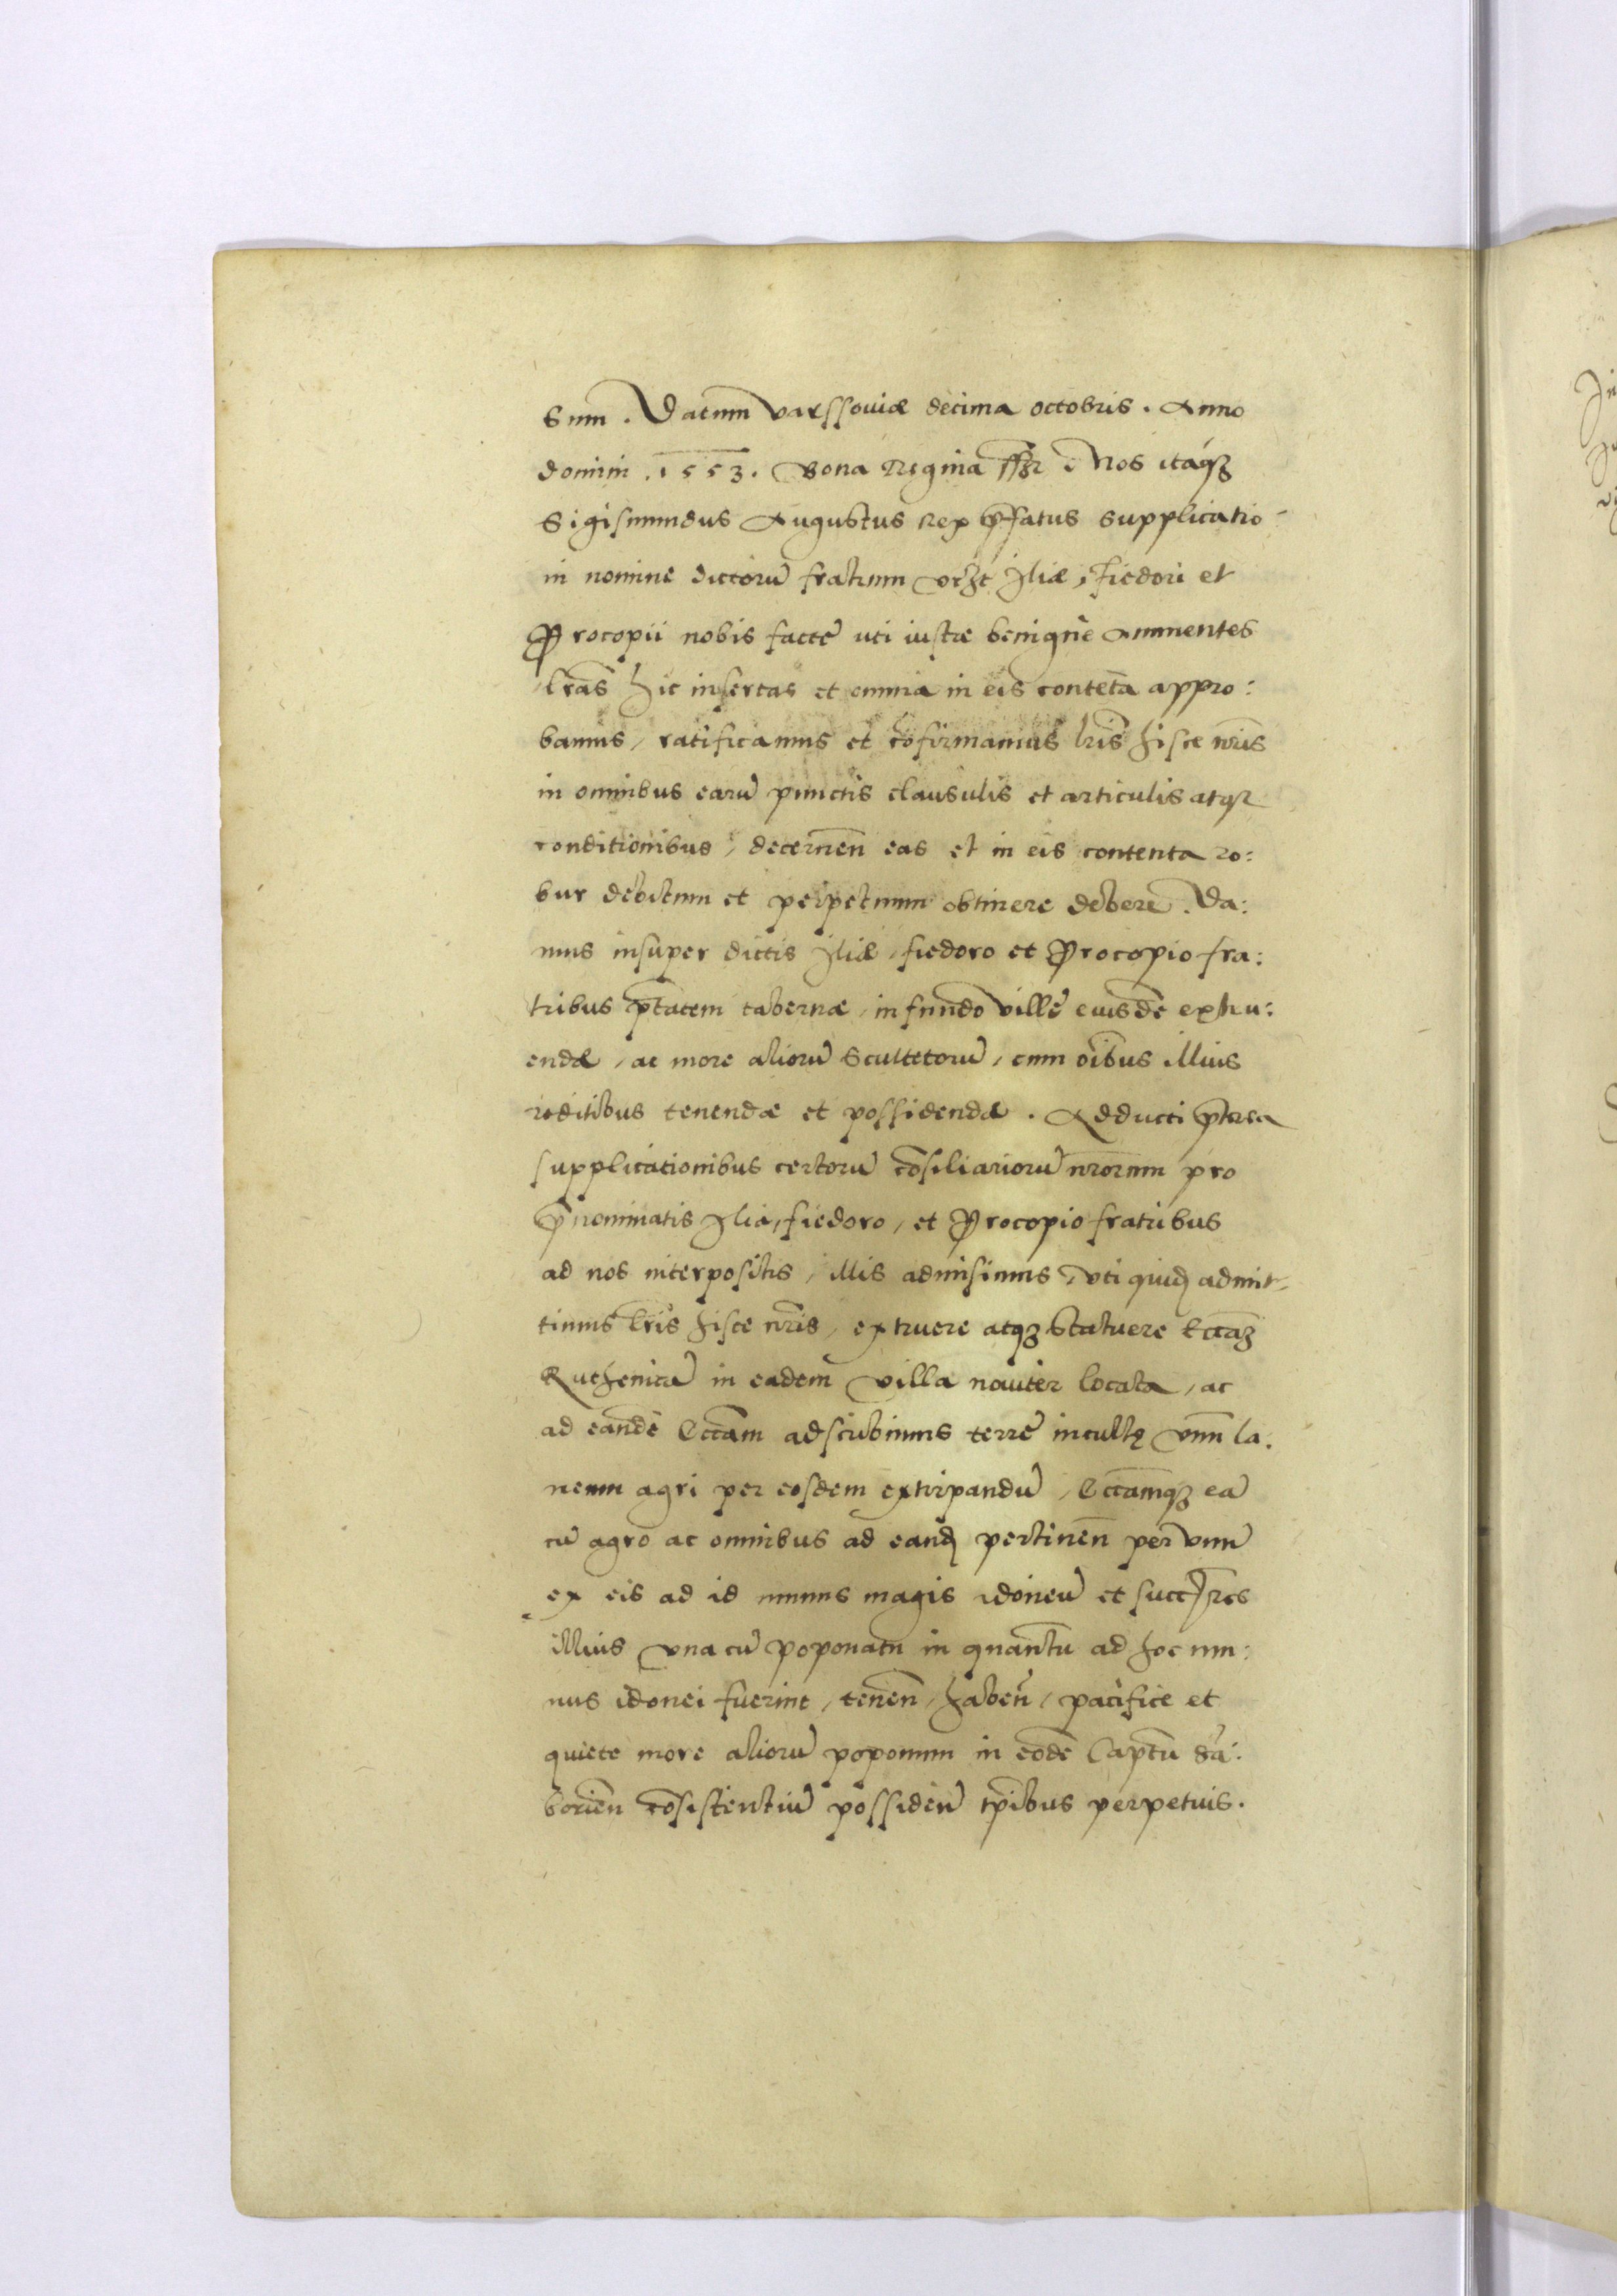 sum. Datum Varssoviæ decima octobris. Anno
domini .1553. Bona Regina sszr Nos itaq̨
Sigismundus Augustus Rex p̄fatus supplicatio-
ni nomine dictorū fratrum vcꝫt Iliæ, Fiedori et
Procopii nobis factę uti iustæ benigne Annuentes
l̄ras hic insertas et omnia in eis contēta appro:
bamus, ratificamus et cōfirmamus l̄ris hisce n̄ris
in omnibus earū punctis clausulis et articulis atqꝫ
conditionibus, decernen̄ eas et in eis contenta ro:
bur debitum et perpetuum obtinere debere. Da:
mus insuper dictis Iliæ, fiedoro et Procopio fra:
tribus p̄tatem tabernæ, in fundo villę eiusdē extru:
endæ, ac more aliorū Scultetorū, cum oībus illius
reditibus tenendæ et possidendæ. Adducti p̄terea
supplicationibus certorū cōsiliariorū n̄rorum pro
p̄nominatis Ilia, fiedoro, et Procopio fratribus
ad nos interpositis, illis admisimus, uti quidȩ admit-
timus l̄ris hisce n̄ris, extruere atqꝫ statuere Eccl̄aꝫ
Ruthenicā in eadem villa noviter locata, ac
ad eandē Eccl̄am adscribimus terrę incultę vnū la.
neum agri per eosdem extirpandū, Eccl̄amqꝫ eā
cū agro ac omnibus ad eandȩ pertinen̄ per vnū
ex eis ad id munus magis idoneū et succ̄res
illius una cū poponatu in quantū ad hoc mu:
nus idonei fuerint, tenen̄, haben̄, pacifice et
quiete more aliorū poponum in eodē Cap̄tu Sā:
borien̄ cōsistentiū possiden̄ t̄pibus perpetuis.